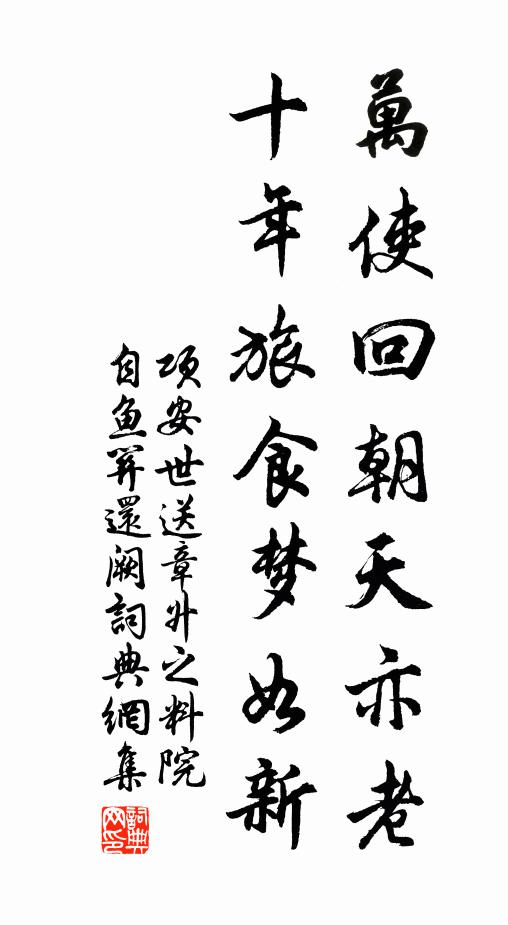 萬使回朝天亦老
十年旅食梦如新
项安世送章升之料院
自鱼笄還阙詞典網集
詞典网印